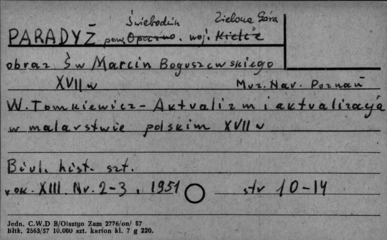 Świebodzin Zielona Góra
PARADYŻ pow. Opoczno. woj. Kielce
obraz Św Marcin Boguszewskiego
XVII w Muz. Nar. Poznań
W. Tomkiewicz - Aktualizm i aktualizacja
w malarstwie polskim XVII w
Biul. hist. szt.
rok. XIII. Nr. 2-3, 1951 str 10-14
Jedn. C.W.D B/Olsztyn Zam 2776/on/ 57
Bltk. 2563/57 10.000 szt. karton kl. 7 g 220.